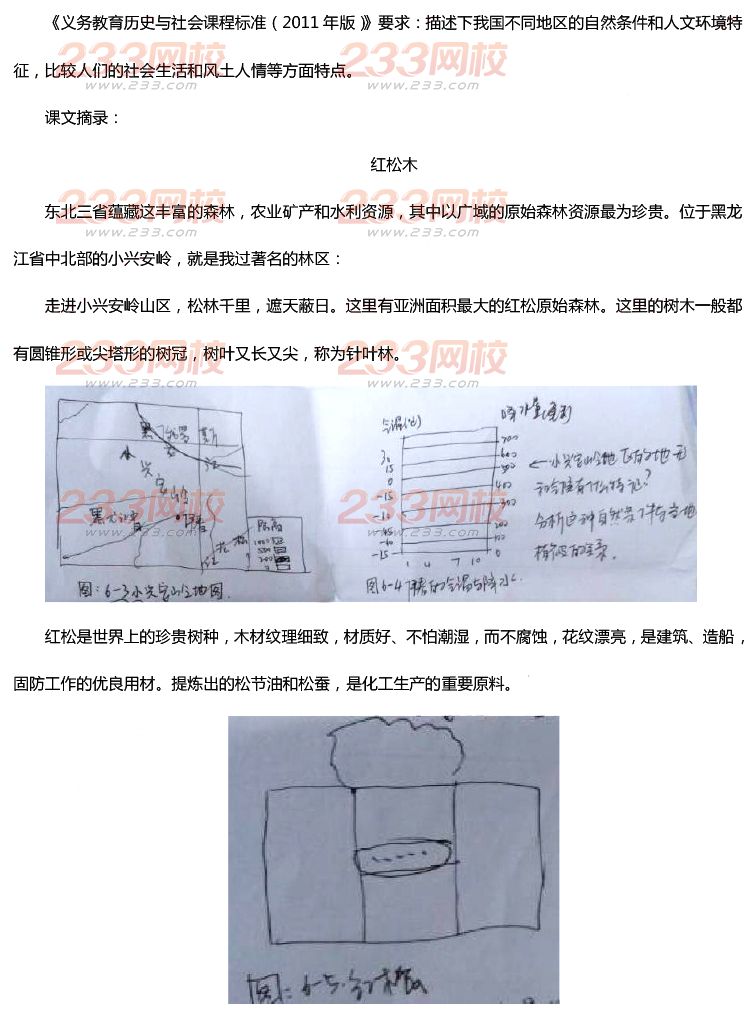 《义务教育历史与社会课程标准（2011 年版）》要求：描述下我国不同地区的自然条件和人文环境特
征，比较人们的社会生活和风土人情等方面特点。
课文摘录：
红松木
东北三省蕴藏这丰富的森林，农业矿产和水利资源，其中以广域的原始森林资源最为珍贵。位于黑龙
江省中北部的小兴安岭，就是我过著名的林区：
走进小兴安岭山区，松林千里，遮天蔽日。这里有亚洲面积最大的红松原始森林。这里的树木一般都
有圆锥形或尖塔形的树冠，树叶又长又尖，称为针叶林。
黑
俄罗斯
小
兴
安
岭
江
黑龙江省
1000
500
200
0
图：6-3 小兴安岭地图
气温(℃)
降水量(毫米)
30
15
0
-15
-30
-45
-60
-15
700
600
500
400
300
200
100
0
1 4 7 10
←小兴安岭地区的地形
和气候有什么特征？
分析这种自然条件与当地
植被的关系。
红松是世界上的珍贵树种，木材纹理细致，材质好、不怕潮湿，而不腐蚀，花纹漂亮，是建筑、造船，
固防工作的优良用材。提炼出的松节油和松蚕，是化工生产的重要原料。
图：6-5
233网校
www.233.com